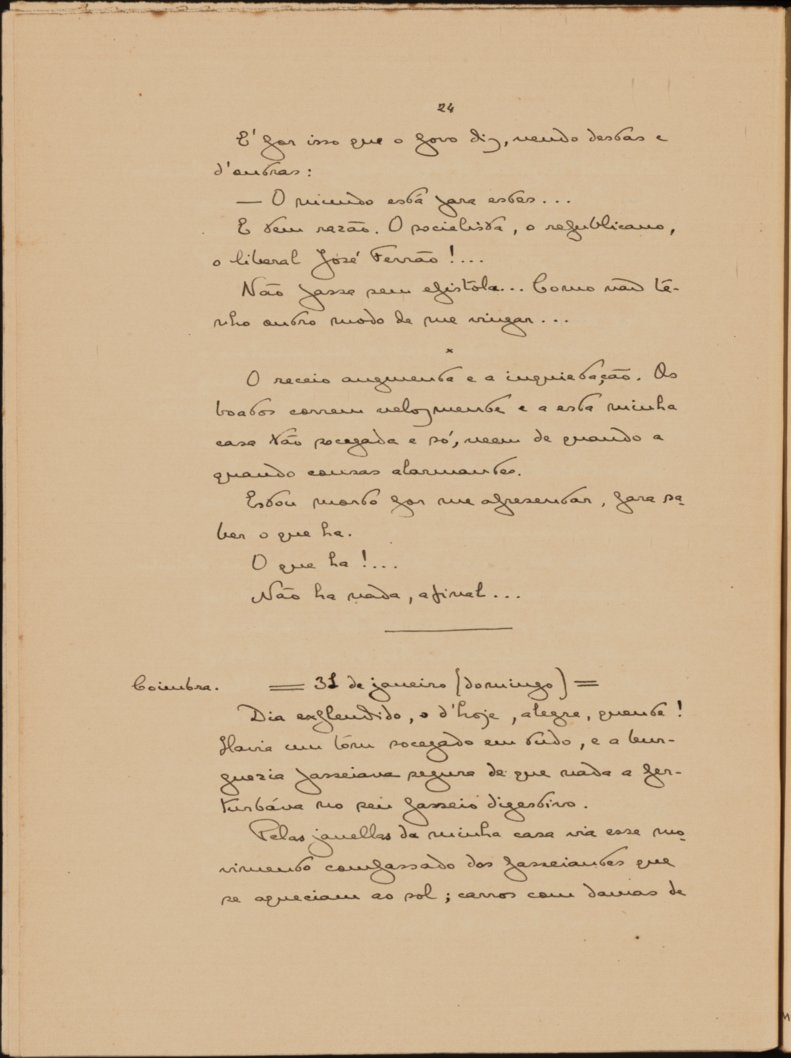 24
E' por isso que o povo diz, vendo destas e
d'outras:
— O mundo está para estes...
E tem razão. O socialista, o republicano,
o liberal José Ferrão!...
Não passa sem epistola... Como não tê-
nho outro modo de me vingar...
x
O receio augmenta e a inquietação. Os
boatos correm velozmente e a esta minha
casa tão socegada e só, veem de quando a
quando cousas alarmantes.
Estou morto por me apresentar, para sa-
ber o que ha.
O que ha!...
Não ha nada, afinal...
Coimbra. = 31 de janeiro (domingo) =
Dia explendido, o d'hoje, alegre, quente!
Havia um tóm socegado em tudo, e a bur-
guezia passeiava segura de que nada a per-
turbáva no seu passeio digestivo.
Pelas janellas da minha casa via esse mo-
vimento compassado dos passeiantes que
se aqueciam ao sol; carros com damas de